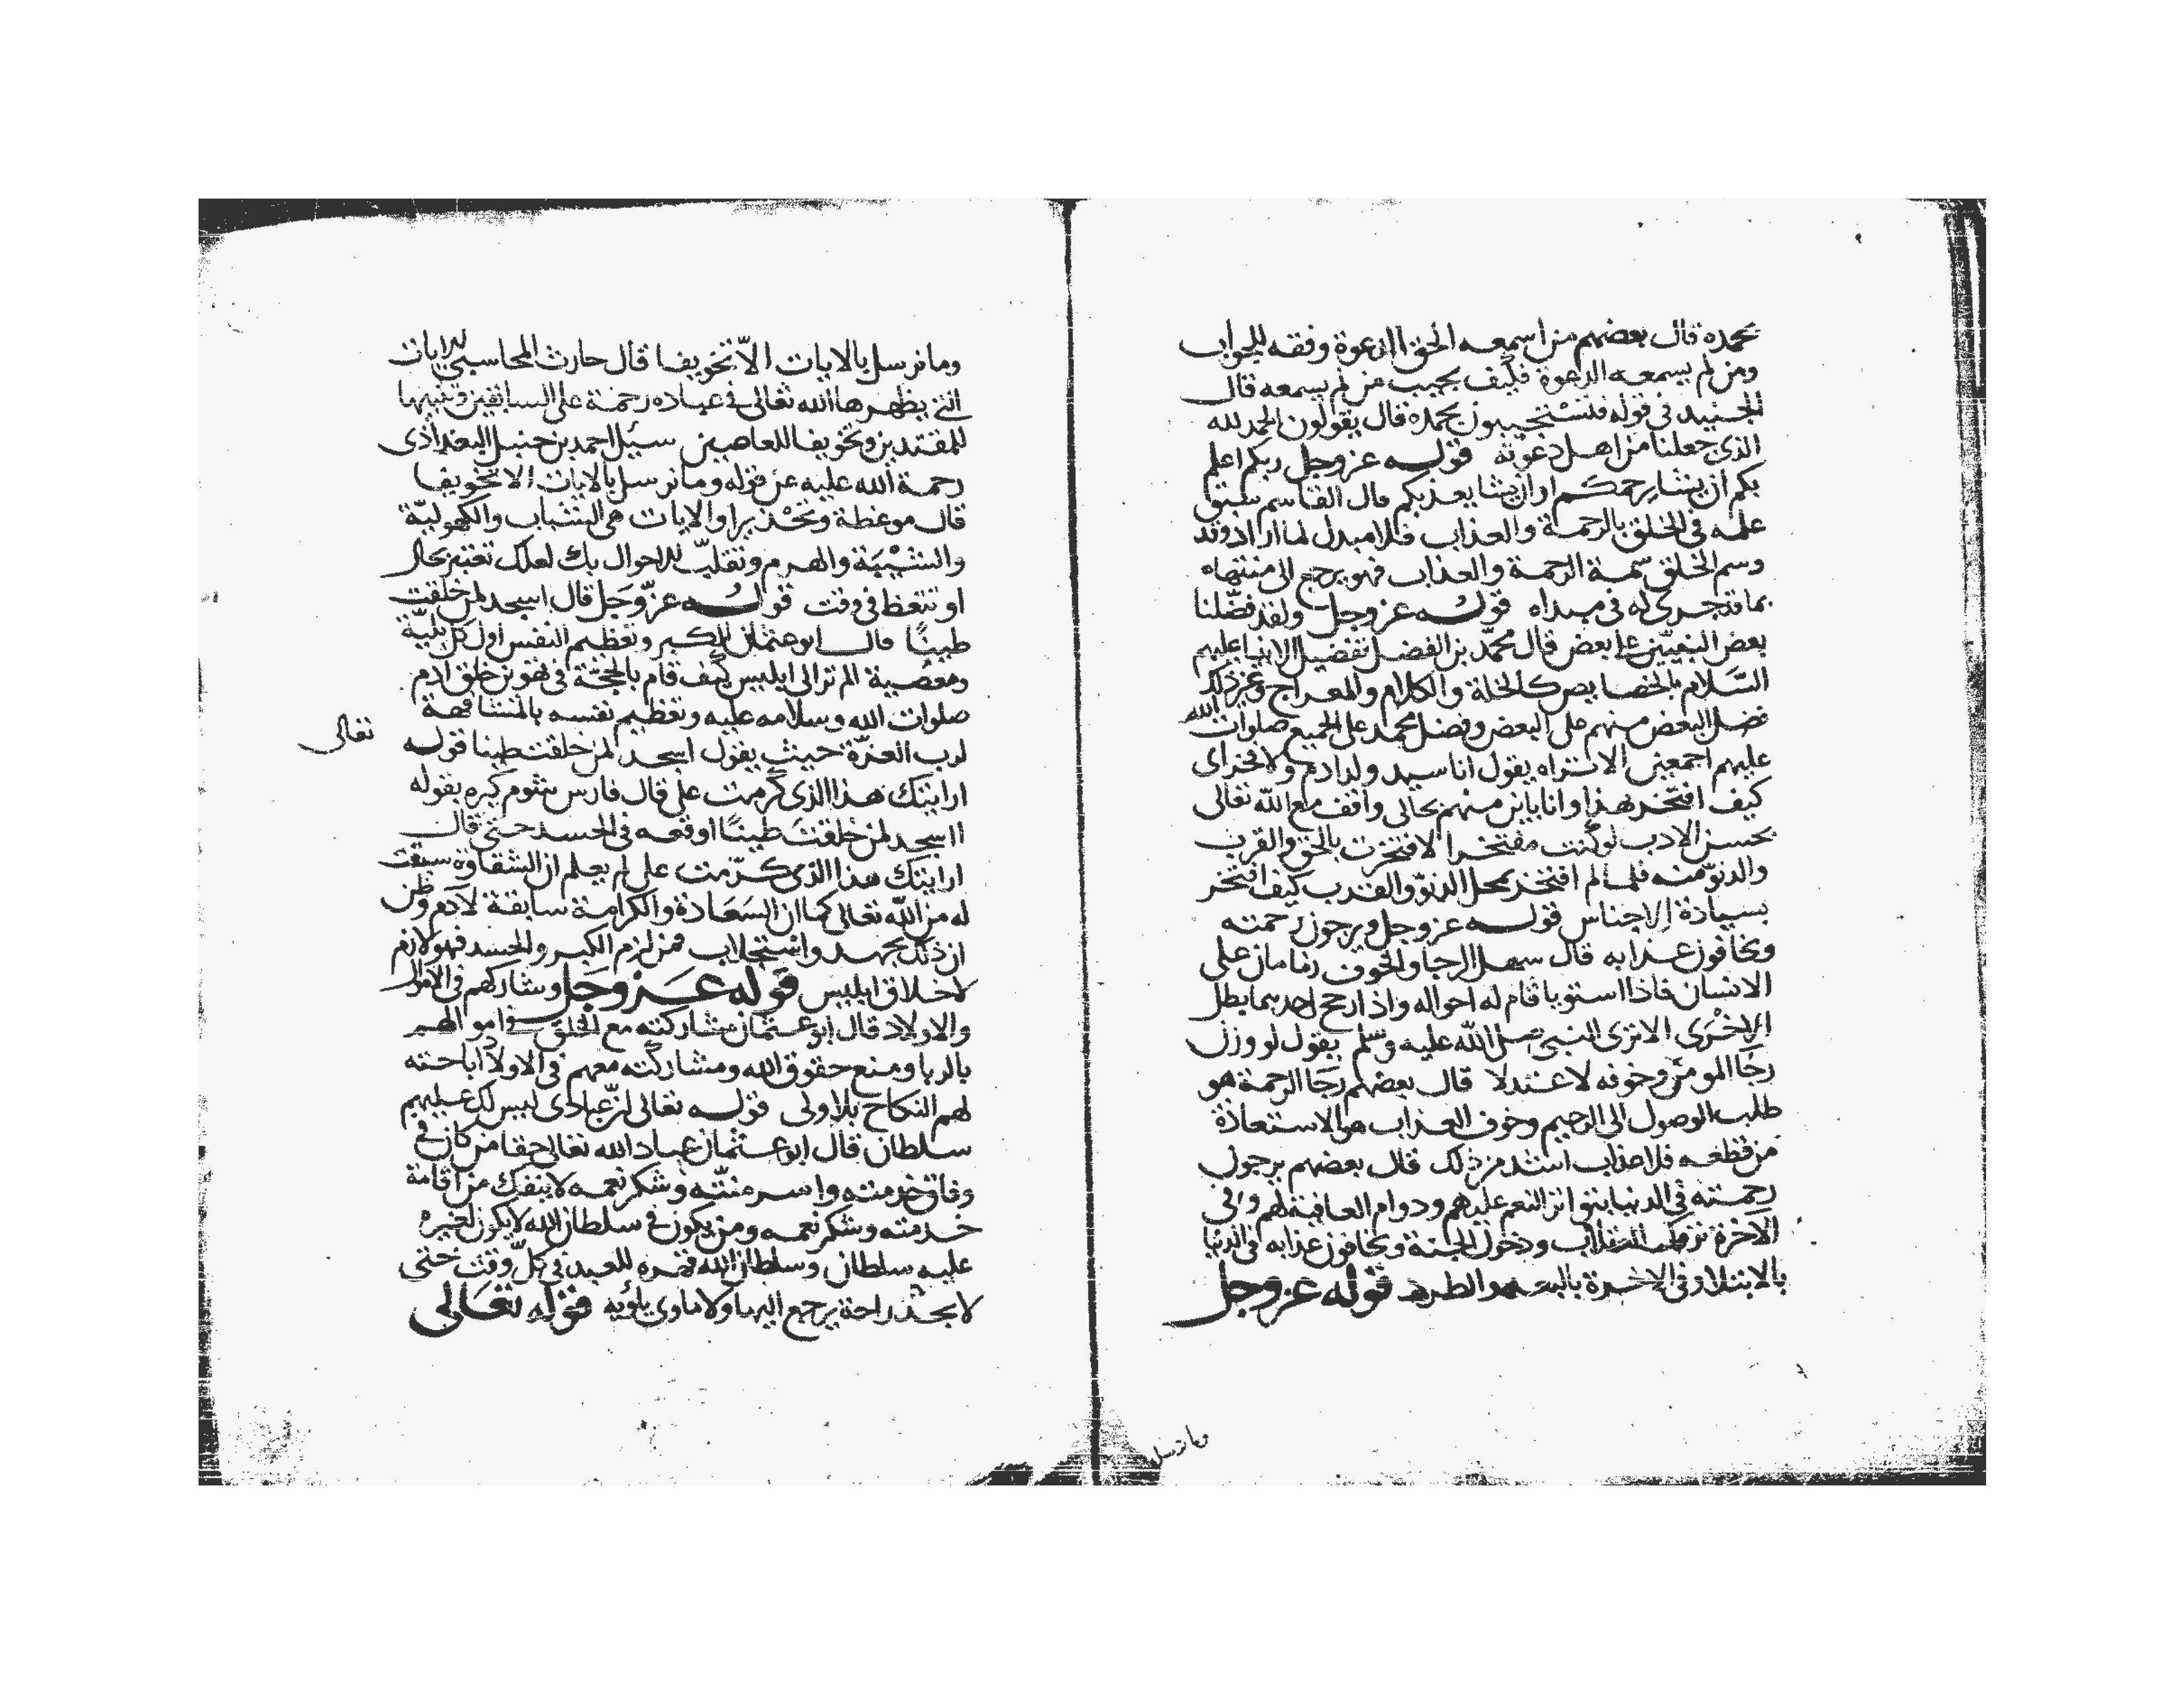 بحمده قال بعضهم من اسمعه الحق الدعوة وفقه للجواب
ومن لم يسمعه الدعوة فكيف يجيب من لم يسمعه قال
الجنيد في قوله فتستجيبون بحمده قال يقولون الحمد لله
الذي جعلنا من اهل دعوته قوله عز وجل ربكم اعلم
بكم ان يشا يرحمكم او ان يشا يعذبكم قال القاسم سبق
علمه في الخلق بالرحمة والعذاب فلا مبدل لما اراد وقد
وسم الخلق سمة الرحمة والعذاب فهو يرجع الى منتهاه
بما قد جرى له في مبداه قوله عز وجل ولقد فضّلنا
بعض النبيّين على بعض قال محمّد بن الفضل تفضيل الانبيا عليهم
السّلام بالخصايص كالخلة والكلام والمعراج وغير ذلك
فضل البعض منهم على البعض وفضل محمد على الجميع صلوات الله
عليهم اجمعين الا تراه يقول انا سيد ولد ادم ولا فخر اي
كيف افتخر بهذا وانا باين منهم بحالي واقف مع الله تعالى
بحسن الادب لو كنت مفتخرا لافتخرت بالحق والقرب
والدنوّ منه فلما لم افتخر بمحل الدنوّ والقرب كيف افتخر
بسيادة الاجناس قوله عز وجل ويرجون رحمته
ويخافون عذابه قال سهل الرجا والخوف زمامان على
الانسان فاذا استويا قام له احواله واذا رجح احدهما بطل
الاخرى الا ترى النبي صلى الله عليه وسلم يقول لو وزن
رجا المومن وخوفه لاعتدلا قال بعضهم رجا الرحمة هو
طلب الوصول الى الرحيم وخوف العذاب هو الاستعاذة
من قطعه فلا عذاب اشد من ذلك قال بعضهم يرجون
رحمته في الدنيا بتواتر النعم عليهم ودوام العافية لهم وفي
الاخرة ودخول الجنة ويخافون عذابه في الدنيا
بالابتلا وفي الاخرة والطرد قوله عز وجل
وما نرسل
وما نرسل بالايات الاّ تخويفا قال حارث المحاسبي الايات
التي يظهرها الله تعالى في عباده رحمة على السابقين وتنبيها
للمقتدين وتخويفا للعاصين سئل احمد بن حنبل البغداذى
رحمة الله عليه عن قوله وما نرسل بالايات الا تخويفا
قال موعظة وتحذيرا والايات هي الشباب والكهوليّة
والشّيبة والهرم وتقلّب الاحوال بك لعلك تعتبر بحال
او تتعظ في وقت قوله عزّ وجل قال ااسجد لمن خلقت
طينًا قال ابو عثمان الكبر وتعظيم النفس اول كل بليّة
ومعصية الم تر الى ابليس كيف قام بالحجّة في تهوين خلق ادم
صلوات الله وسلامه عليه وتعظيم نفسه بالمشافهة
لرب العزّة حيث يقول ااسجد لمن خلقت طينا قوله تعالى
ارايتك هذا الذي كرمت علي قال فارس شوم كبره بقوله
ااسجد لمن خلقت طينًا اوقعه في الحسد حتى قال
ارايتك هذا الذي كرّمت علي لم يعلم ان الشقاوة سبقت
له من الله تعالى كما ان السعادة والكرامة سابقة لادم وظن
ان ذلك بجهد واستجلاب فمن لزم الكبر والحسد فهو لازم
لاخلاق ابليس قوله عز وجل وشاركهم في الاموال
والاولاد قال ابو عثمان مشاركته مع الخلق في اموالهم
بالربا ومنع حقوق الله ومشاركته معهم في الاولاد اباحته
لهم النكاح بلا ولي قوله تعالى ان عبادي ليس لك عليهم
سلطان قال ابو عثمان عباد الله تعالى حقا من كان في
وفاق خدمته واسر منّته وشكر نعمه لا ينفك من اقامة
خدمته وشكر نعمه ومن يكون في سلطان الله لا يكون لغيره
عليه سلطان وسلطان الله قهره للعبد في كلّ وقت حتى
لا يجد راحة يرجع اليها ولا ماوى يلؤيه قوله تعالى